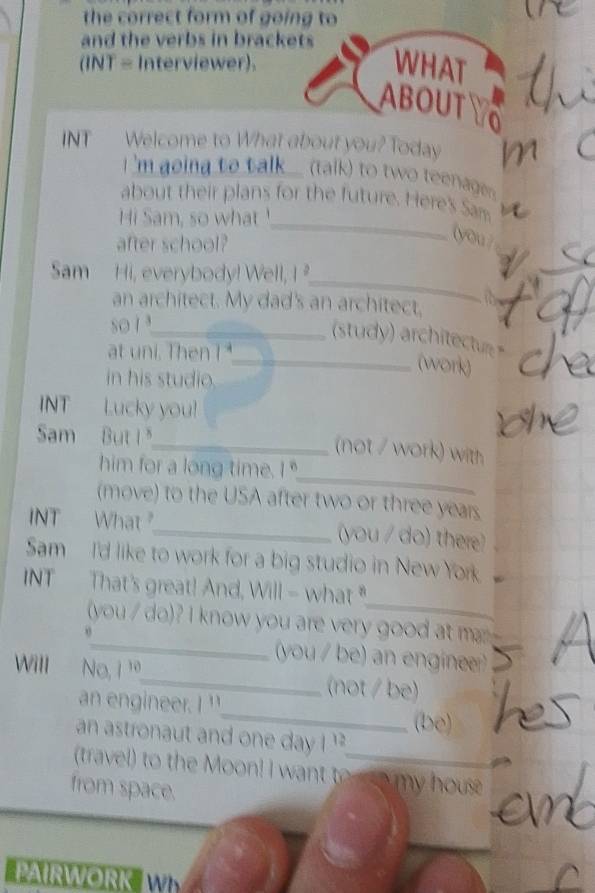 the correct form of going to
and the verbs in brackets
(INT = Interviewer).
WHAT
ABOUT YO
INT Welcome to What about you? Today
I 'm going to talk (talk) to two teenagers
about their plans for the future. Here's Sam
Hi Sam, so what 1
(you /
after school?
Sam Hi, everybody! Well, I 2
an architect. My dad's an architect,
so I 3 (study) architecture
at uni. Then I 4 (work)
in his studio.
INT Lucky you!
Sam But I 5 (not / work) with
him for a long time. I 6
(move) to the USA after two or three years.
INT What 7 (you / do) there?
Sam I'd like to work for a big studio in New York.
INT That's great! And, Will – what 8
(you / do)? I know you are very good at
9 (you / be) an engineer?
Will No, I 10 (not / be)
an engineer. I 11 (be)
an astronaut and one day I 12
(travel) to the Moon! I want to my house
from space.
PAIRWORK Wh